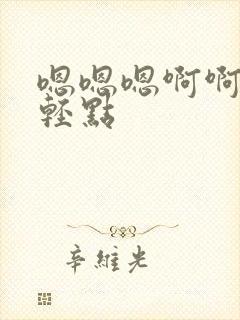 嗯嗯嗯啊啊
輕點
辛維光